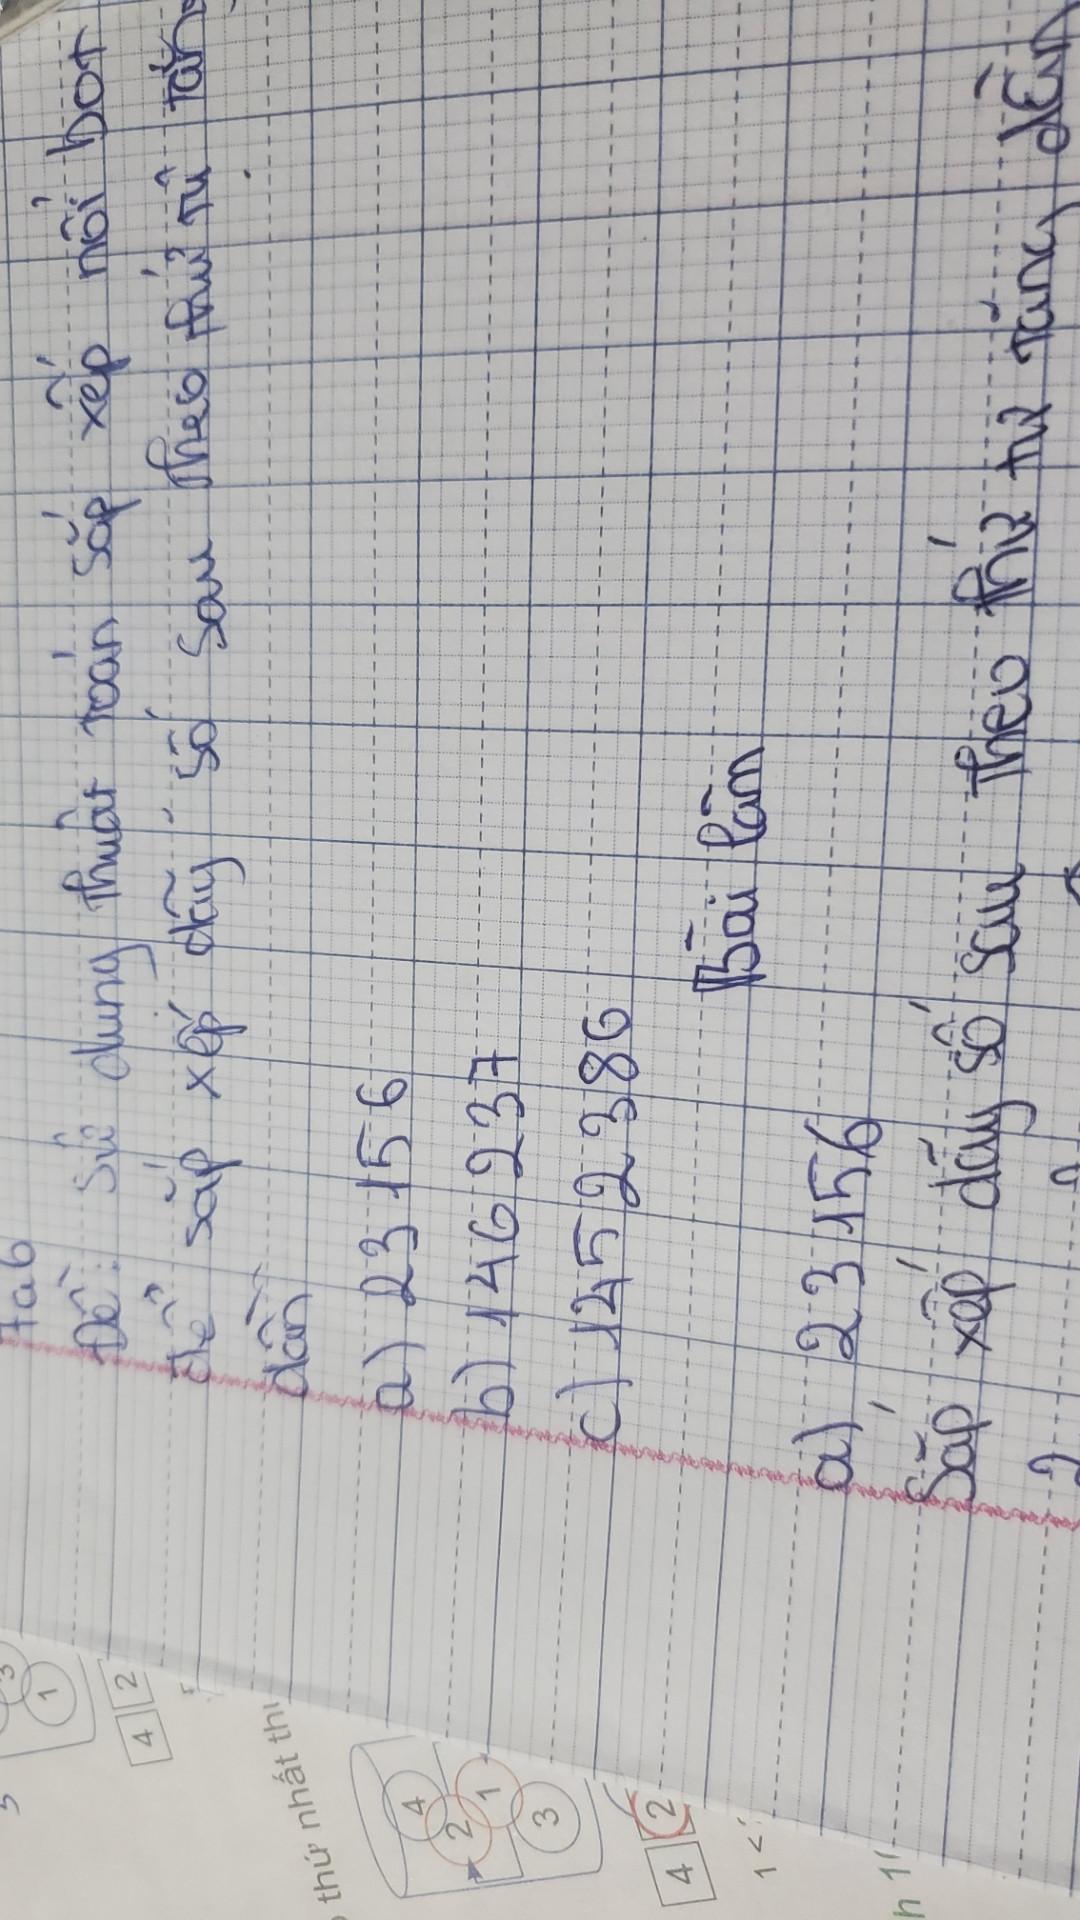 7a6
Đề: Sử dụng thuật toán sắp xếp nổi bọt
để sắp xếp dãy số sau theo thứ tự tăng
dần
a) 23 15 6
b) 146 237
c) 1245 2386
Bài làm
a) 23 156
Sắp xếp dãy số sau theo thứ tự tăng dến
3
1
4 2
thứ nhất thì
4
2 1
3
4 2
1 <
h 1